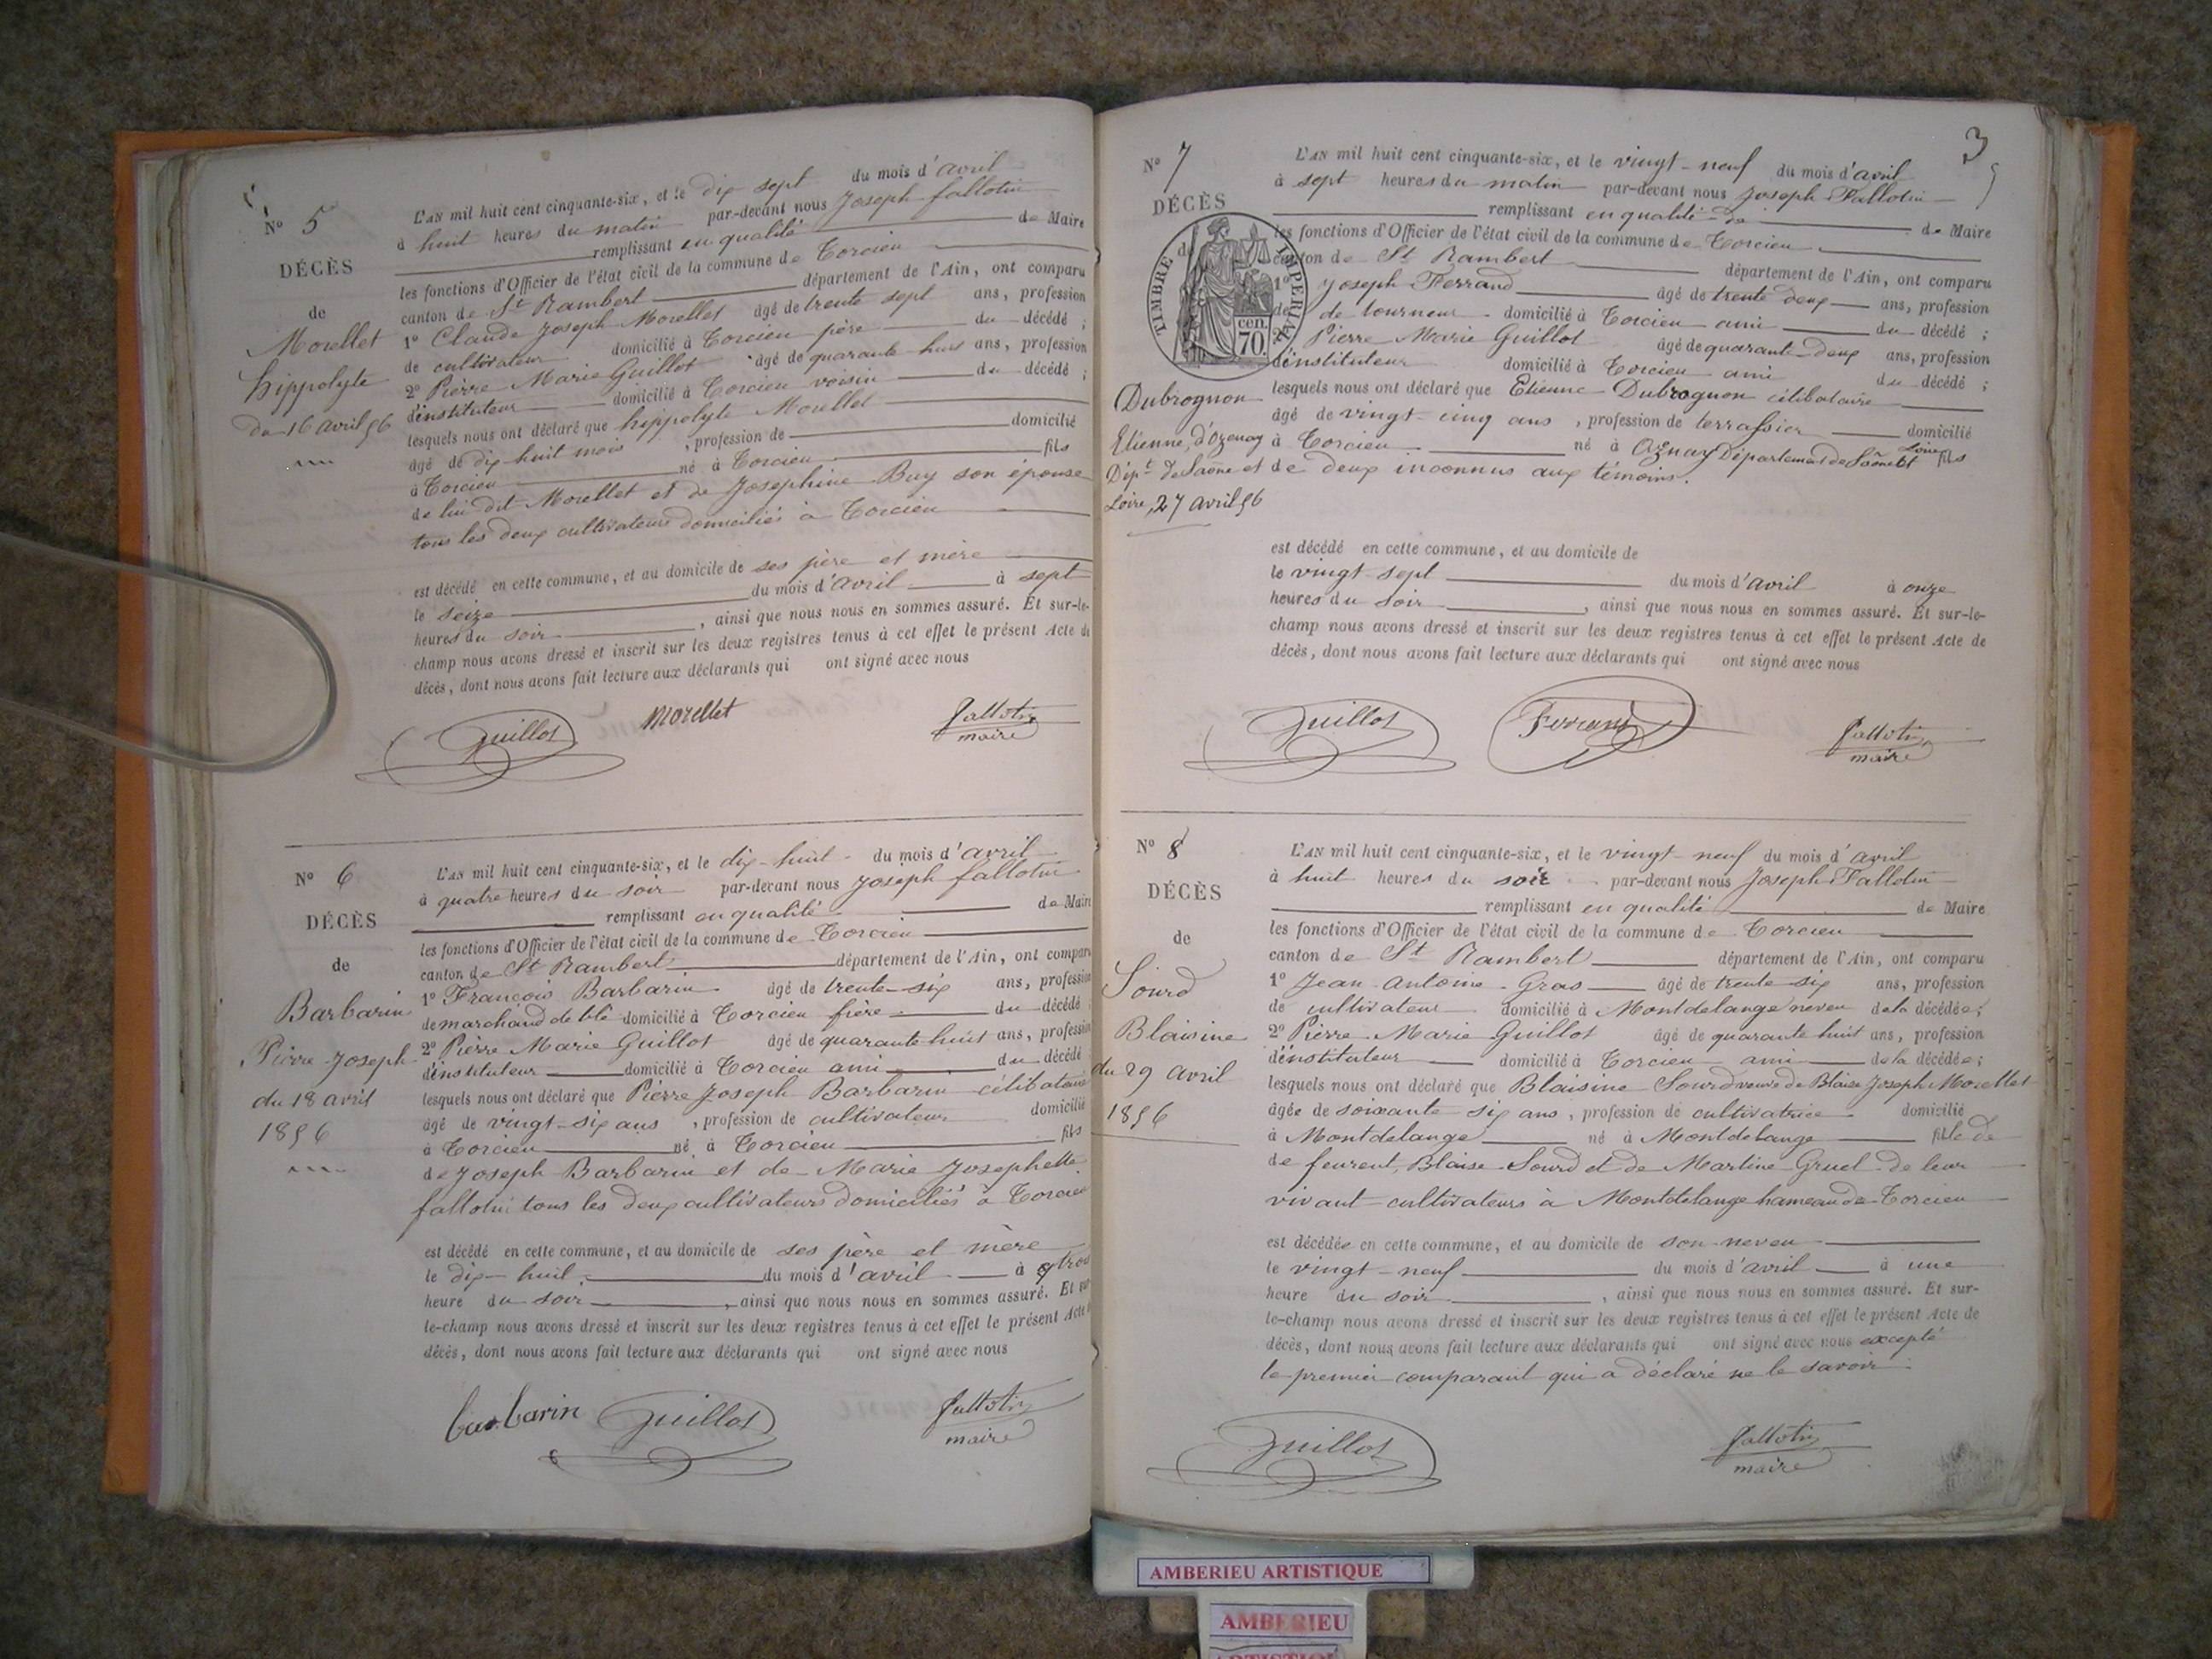 No 5
DÉCÈS
de
Morellet
hippolyte
du 16 avril 56
L'AN mil huit cent cinquante-six, et le dix sept du mois d'avril
à huit heures du matin par-devant nous Joseph fallotin
remplissant en qualité de Maire
les fonctions d'Officier de l'état civil de la commune de Torcieu
canton de St Rambert département de l'Ain, ont comparu
1o Claude Joseph Morellet âgé de trente sept ans, profession
de cultivateur domicilié à Torcieu père du décédé ;
2o Pierre Marie Guillot âgé de quarante huit ans, profession
d'instituteur domicilié à Torcieu voisin du décédé ;
lesquels nous ont déclaré que hippolyte Morellet
âgé de dix huit mois , profession de domicilié
à Torcieu né à Torcieu fils
de lui dit Morellet et de Josephine Buy son épouse
tous les deux cultivateurs domiciliés à Torcieu
est décédé en cette commune, et au domicile de ses père et mère
le seize du mois d'avril à sept
heures du soir , ainsi que nous nous en sommes assuré. Et sur-le-
champ nous avons dressé et inscrit sur les deux registres tenus à cet effet le présent Acte de
décès, dont nous avons fait lecture aux déclarants qui ont signé avec nous
Guillot Morellet fallotin
maire
No 6
DÉCÈS
de
Barbarin
Pierre Joseph
du 18 avril
1856
L'AN mil huit cent cinquante-six, et le dix-huit du mois d'avril
à quatre heures du soir par-devant nous Joseph fallotin
remplissant en qualité de Maire
les fonctions d'Officier de l'état civil de la commune de Torcieu
canton de St Rambert département de l'Ain, ont comparu
1o François Barbarin âgé de trente-six ans, profession
de marchand de blé domicilié à Torcieu frère du décédé
2o Pierre Marie Guillot âgé de quarante huit ans, profession
d'instituteur domicilié à Torcieu ami du décédé
lesquels nous ont déclaré que Pierre Joseph Barbarin célibataire
âgé de vingt-six ans , profession de cultivateur domicilié
à Torcieu né à Torcieu fils
de Joseph Barbarin et de Marie Josephette
fallotin tous les deux cultivateurs domiciliés à Torcieu
est décédé en cette commune, et au domicile de ses père et mère
le dix-huit du mois d'avril à trois
heure du soir , ainsi que nous nous en sommes assuré. Et sur
le-champ nous avons dressé et inscrit sur les deux registres tenus à cet effet le présent Acte
décès, dont nous avons fait lecture aux déclarants qui ont signé avec nous
barbarin Guillot fallotin
maire
3
No 7
DÉCÈS
de
TIMBRE IMPERIAL
cen.
70
Dubrognon
Etienne, d'Ozenay
Dépt de Saône et
Loire, 27 avril 56
L'AN mil huit cent cinquante-six, et le vingt-neuf du mois d'avril
à sept heures du matin par-devant nous Joseph Fallotin
remplissant en qualité de de Maire
les fonctions d'Officier de l'état civil de la commune de Torcieu
canton de St Rambert département de l'Ain, ont comparu
1o Joseph Ferrand âgé de trente deux ans, profession
de tourneur domicilié à Torcieu ami du décédé ;
Pierre Marie Guillot âgé de quarante-deux ans, profession
d'instituteur domicilié à Torcieu ami du décédé ;
lesquels nous ont déclaré que Etienne Dubrognon célibataire
âgé de vingt-cinq ans , profession de terrassier domicilié
à Torcieu né à Oznay Département de Saône et Loire fils
de deux inconnus aux témoins.
est décédé en cette commune, et au domicile de
le vingt-sept du mois d'avril à onze
heures du soir , ainsi que nous nous en sommes assuré. Et sur-le-
champ nous avons dressé et inscrit sur les deux registres tenus à cet effet le présent Acte de
décès, dont nous avons fait lecture aux déclarants qui ont signé avec nous
Guillot Ferrand fallotin
maire
No 8
DÉCÈS
de
Sourd
Blaisine
du 29 avril
1856
L'AN mil huit cent cinquante-six, et le vingt-neuf du mois d'avril
à huit heures du soir par-devant nous Joseph Fallotin
remplissant en qualité de Maire
les fonctions d'Officier de l'état civil de la commune de Torcieu
canton de St Rambert département de l'Ain, ont comparu
1o Jean-Antoine Gras âgé de trente six ans, profession
de cultivateur domicilié à Montdelange neveu de la décédée ;
2o Pierre Marie Guillot âgé de quarante huit ans, profession
d'instituteur domicilié à Torcieu ami de la décédée ;
lesquels nous ont déclaré que Blaisine Sourd veuve de Blaise Joseph Morellet
âgée de soixante six ans , profession de cultivatrice domicilié
à Montdelange né à Montdelange fille de
de feurent, Blaise Sourd et de Martine Gruel de leur
vivant cultivateurs à Montdelange hameau de Torcieu
est décédée en cette commune, et au domicile de son neveu
le vingt-neuf du mois d'avril à une
heure du soir , ainsi que nous nous en sommes assuré. Et sur-
le-champ nous avons dressé et inscrit sur les deux registres tenus à cet effet le présent Acte de
décès, dont nous avons fait lecture aux déclarants qui ont signé avec nous excepté
le premier comparant qui a déclaré ne le savoir.
Guillot fallotin
maire
AMBERIEU ARTISTIQUE
AMBERIEU
ARTISTIQUE